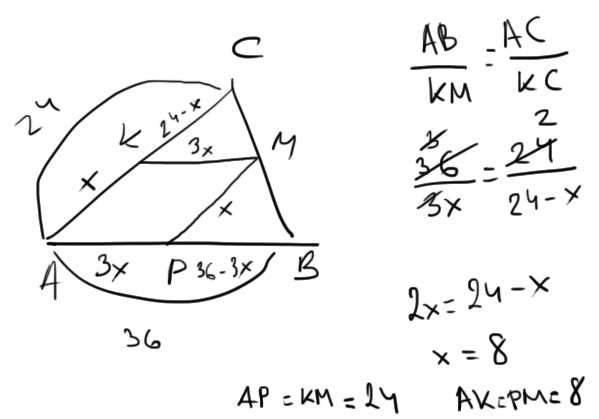 C
24
K
24-x
3x
M
x
x
A
3x
P
36-3x
B
36
AB/KM = AC/KC
3 2
36/3x = 24/24-x
2x = 24-x
x = 8
AP = KM = 24 AK=PM=8